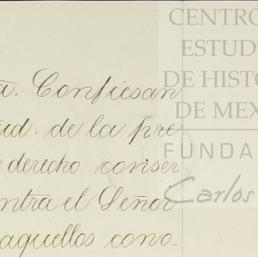 CENTRO
ESTUD
DE HISTO
DE MEX
FUNDA
Carlos
a. Confiesan
ud. de la pre
derecho conser
ntra el Señor
aquellos cono-